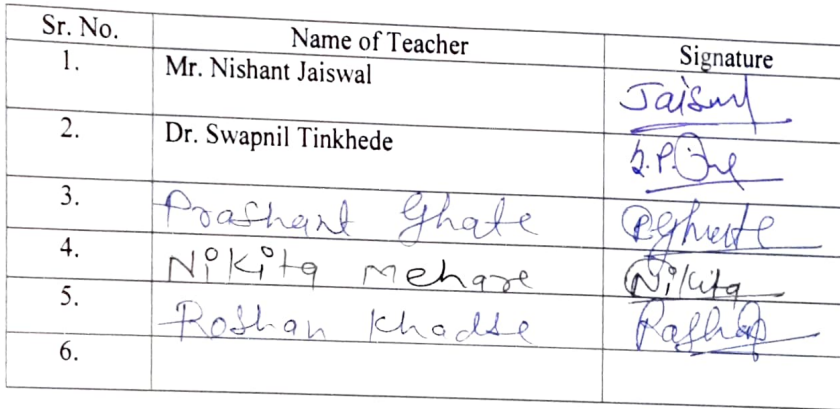 Sr. No. Name of Teacher Signature
1. Mr. Nishant Jaiswal Jaiswal
2. Dr. Swapnil Tinkhede S.P.
3. Prashant Ghate PGhate
4. Nikita Mehare Nikita
5. Roshan Khadse Roshan
6.